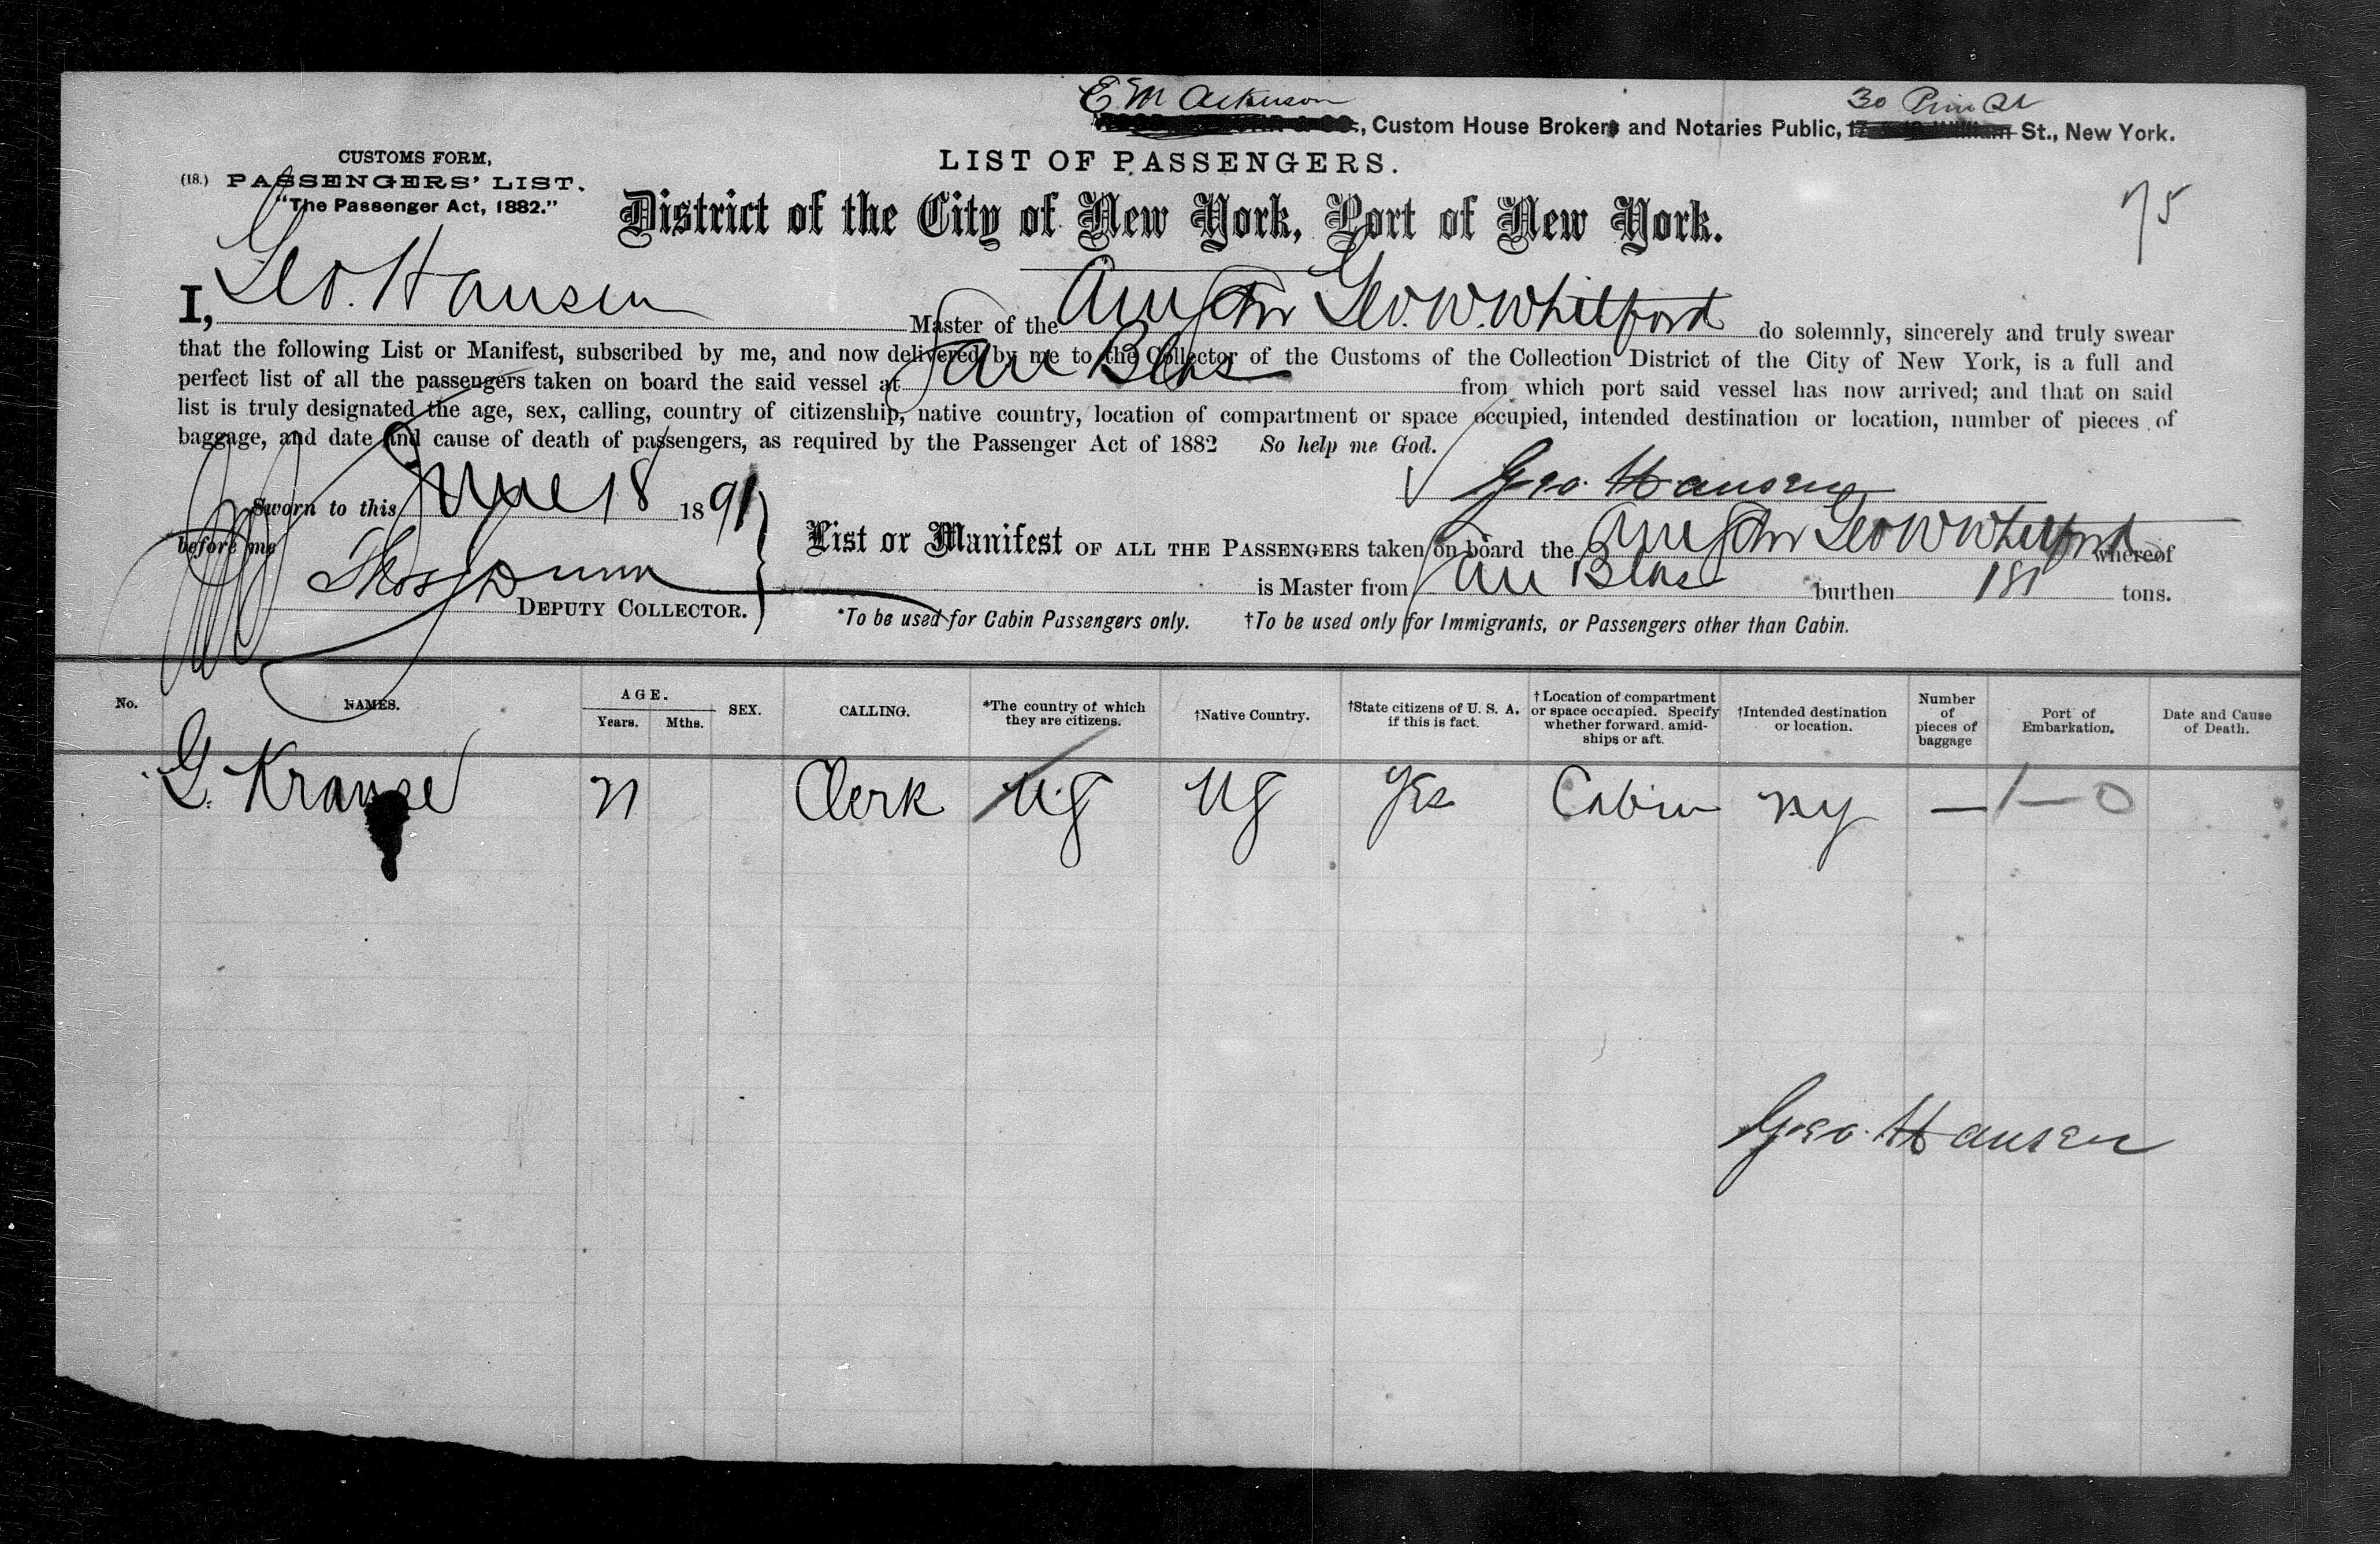 E M Atkinson 30 Pine St
, Custom House Brokers and Notaries Public, St., New York.
CUSTOMS FORM,
(18.) PASSENGERS' LIST.
"The Passenger Act, 1882."
LIST OF PASSENGERS.
District of the City of New York, Port of New York.
75
I, Geo. Hansen Master of the Am Schr Geo. W. Whitford do solemnly, sincerely and truly swear
that the following List or Manifest, subscribed by me, and now delivered by me to the Collector of the Customs of the Collection District of the City of New York, is a full and
perfect list of all the passengers taken on board the said vessel at San Blas from which port said vessel has now arrived; and that on said
list is truly designated the age, sex, calling, country of citizenship, native country, location of compartment or space occupied, intended destination or location, number of pieces of
baggage, and date and cause of death of passengers, as required by the Passenger Act of 1882 So help me God.
Geo. Hansen
Sworn to this June 18 1891
before me
Thos Dunn
DEPUTY COLLECTOR.
List or Manifest OF ALL THE PASSENGERS taken on board the Am Schr Geo W Whitford whereof
is Master from San Blas burthen 181 tons.
*To be used for Cabin Passengers only. †To be used only for Immigrants, or Passengers other than Cabin.
No. NAMES. AGE. Years. Mths. SEX. CALLING. *The country of which they are citizens. †Native Country. †State citizens of U. S. A. if this is fact. †Location of compartment or space occupied. Specify whether forward, amidships or aft. †Intended destination or location. Number of pieces of baggage Port of Embarkation. Date and Cause of Death.
G. Krause 21 Clerk US US Yes Cabin NY — 1—0
Geo. Hansen